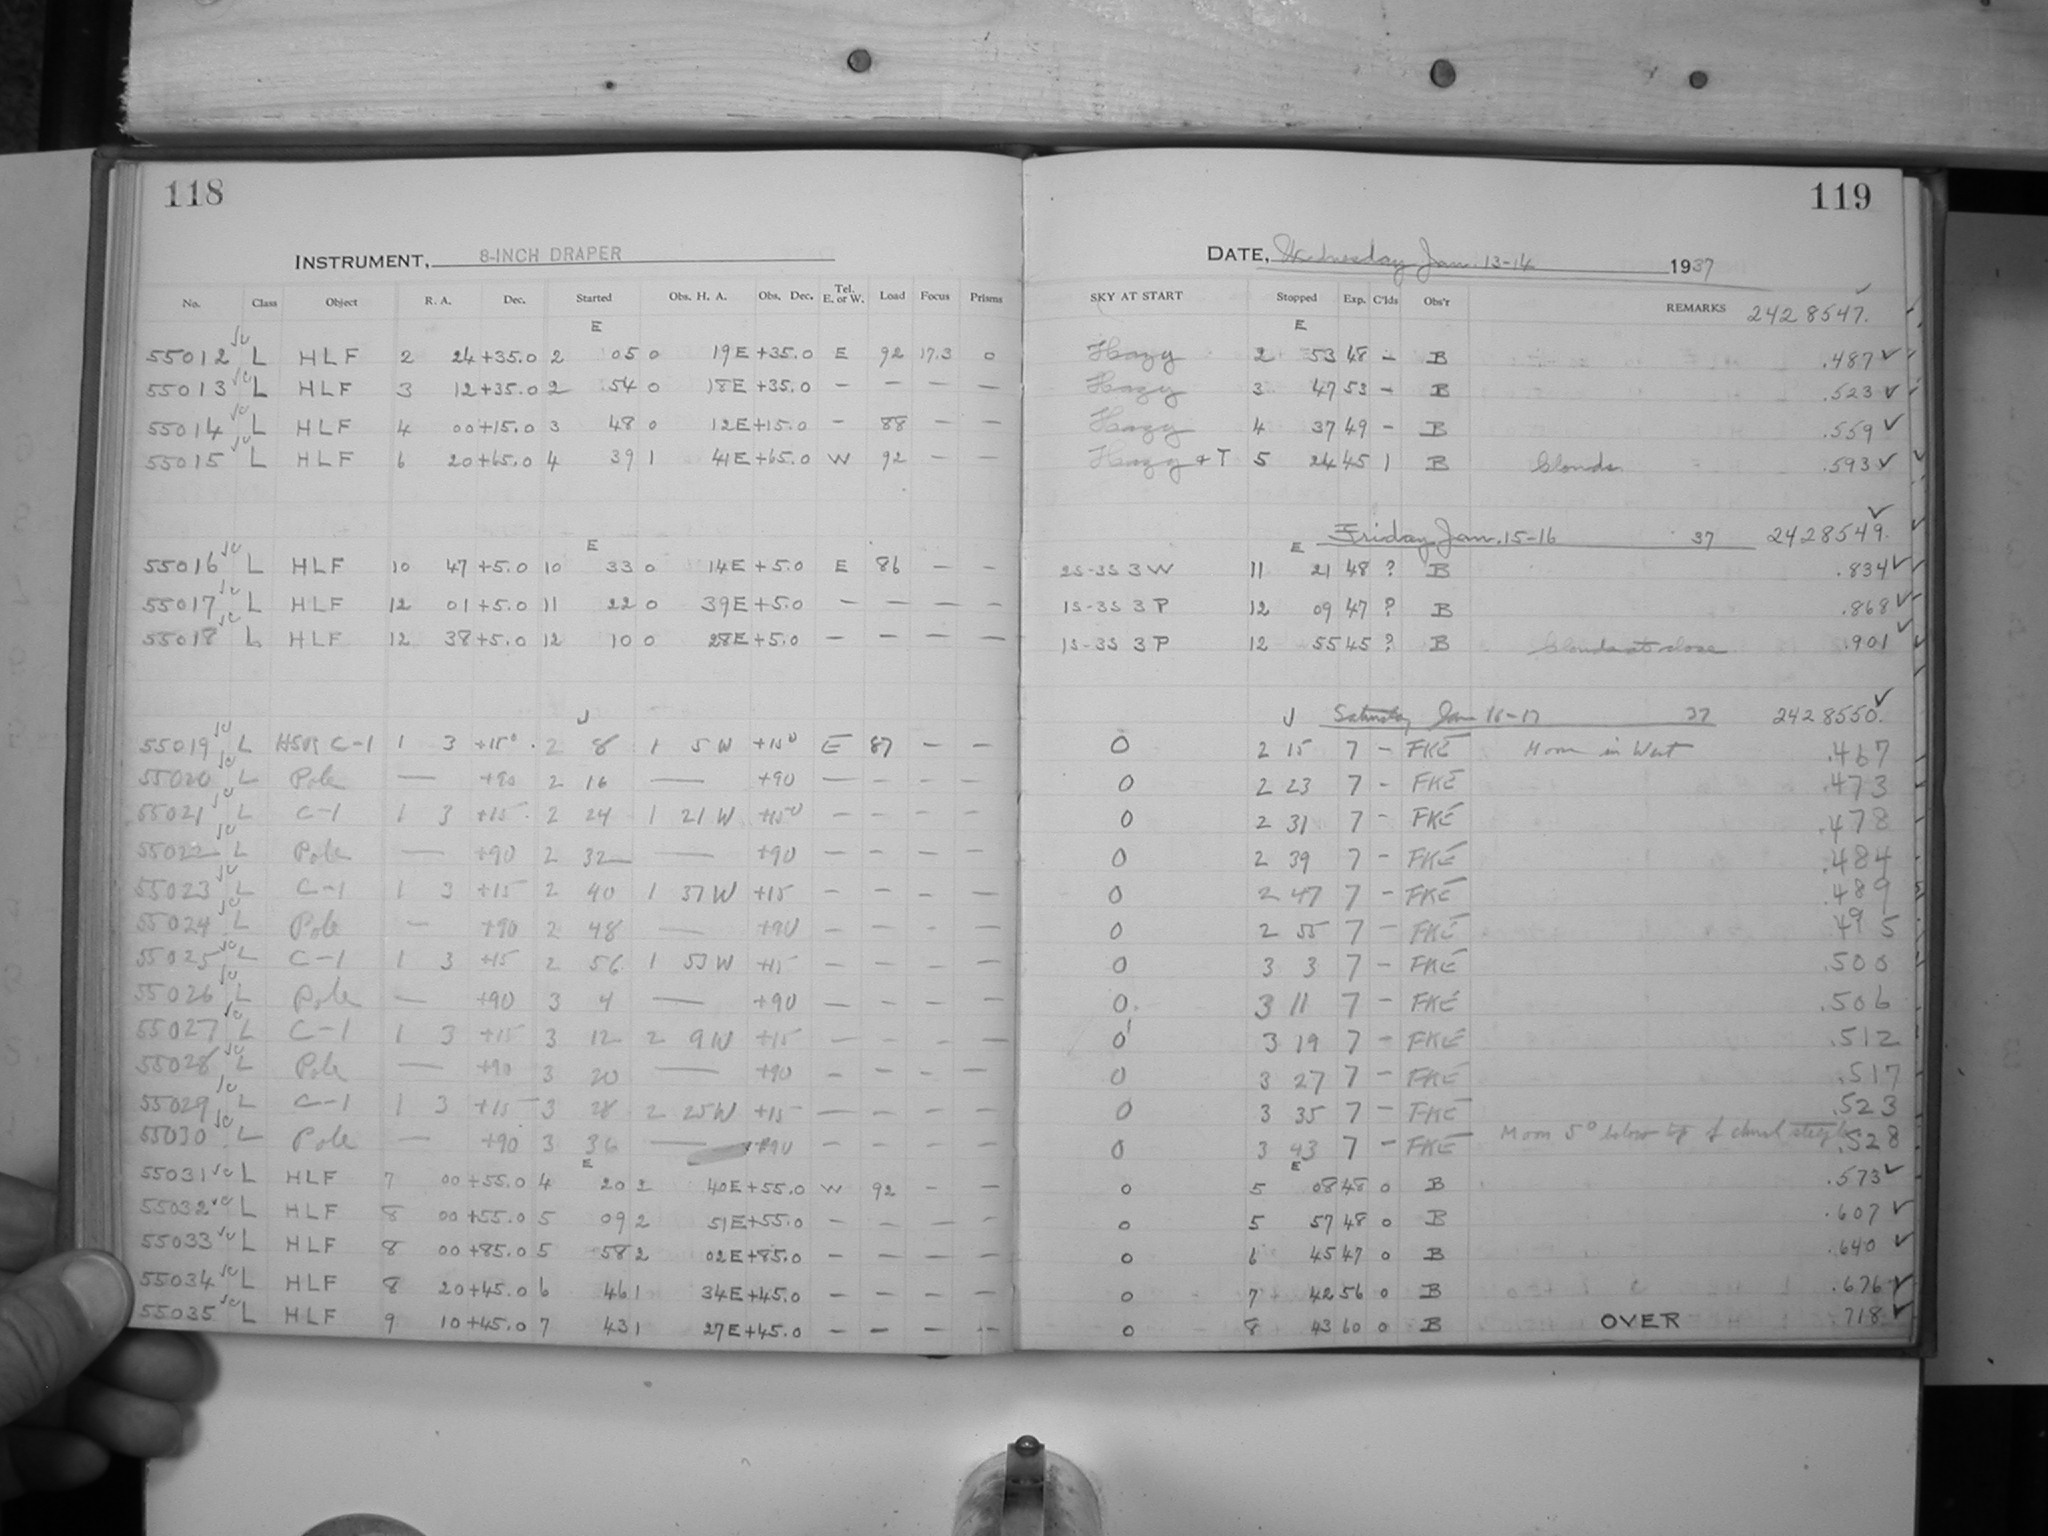 118
INSTRUMENT, 8-INCH DRAPER
No. Class Object R. A. Dec. Started Obs. H. A. Obs. Dec. Tel. E. or W. Load Focus Prisms
E
55012 L HLF 2 24 +35.0 2 05 0 19E +35.0 E 92 17.3 0
55013 L HLF 3 12 +35.0 2 54 0 18E +35.0 - - - -
55014 L HLF 4 00 +15.0 3 48 0 12E +15.0 - 88 - -
55015 L HLF 6 20 +65.0 4 39 1 41E +65.0 W 92 - -
E
55016 L HLF 10 47 +5.0 10 33 0 14E +5.0 E 86 - -
55017 L HLF 12 01 +5.0 11 22 0 39E +5.0 - - - -
55018 L HLF 12 38 +5.0 12 10 0 28E +5.0 - - - -
J
55019 L C-1 1 3 +15° 2 8 1 5W +15° E 87 - -
55020 L Pole — +90 2 16 — +90 - - - -
55021 L C-1 1 3 +15 2 24 1 21W +15° - - - -
55022 L Pole — +90 2 32 — +90 - - - -
55023 L C-1 1 3 +15 2 40 1 37W +15 - - - -
55024 L Pole — +90 2 48 — +90 - - - -
55025 L C-1 1 3 +15 2 56 1 53W +15 - - - -
55026 L Pole — +90 3 4 — +90 - - - -
55027 L C-1 1 3 +15 3 12 2 9W +15 - - - -
55028 L Pole — +90 3 20 — +90 - - - -
55029 L C-1 1 3 +15 3 28 2 25W +15 - - - -
55030 L Pole — +90 3 36 — +90 - - - -
E
55031 L HLF 7 00 +55.0 4 20 2 40E +55.0 W 92 - -
55032 L HLF 8 00 +55.0 5 09 2 51E +55.0 - - - -
55033 L HLF 8 00 +85.0 5 58 2 02E +85.0 - - - -
55034 L HLF 8 20 +45.0 6 46 1 34E +45.0 - - - -
55035 L HLF 9 10 +45.0 7 43 1 27E +45.0 - - - -
119
DATE, Wednesday Jan. 13-14 1937
SKY AT START Stopped Exp. C'lds Obs'r REMARKS 2428547.
E
Hazy 2 53 48 - B .487 ✓
Hazy 3 47 53 - B .523 ✓
Hazy 4 37 49 - B .559 ✓
Hazy + T 5 24 45 1 B Clouds. .593 ✓
Friday Jan. 15-16 37 2428549.
E
2S-3S 3W 11 21 48 ? B .834 ✓
1S-3S 3P 12 09 47 ? B .868 ✓
1S-3S 3P 12 55 45 ? B Clouds at close .901 ✓
J Saturday Jan 16-17 37 2428550.
0 2 15 7 - FKE Moon in West .467
0 2 23 7 - FKE .473
0 2 31 7 - FKE .478
0 2 39 7 - FKE .484
0 2 47 7 - FKE .489
0 2 55 7 - FKE .495
0 3 3 7 - FKE .500
0 3 11 7 - FKE .506
0 3 19 7 - FKE .512
0 3 27 7 - FKE .517
0 3 35 7 - FKE .523
0 3 43 7 - FKE Moon 5° below top of church steeple .528
E
0 5 08 48 0 B .573 ✓
0 5 57 48 0 B .607 ✓
0 6 45 47 0 B .640 ✓
0 7 42 56 0 B .676 ✓
0 8 43 60 0 B OVER .718 ✓